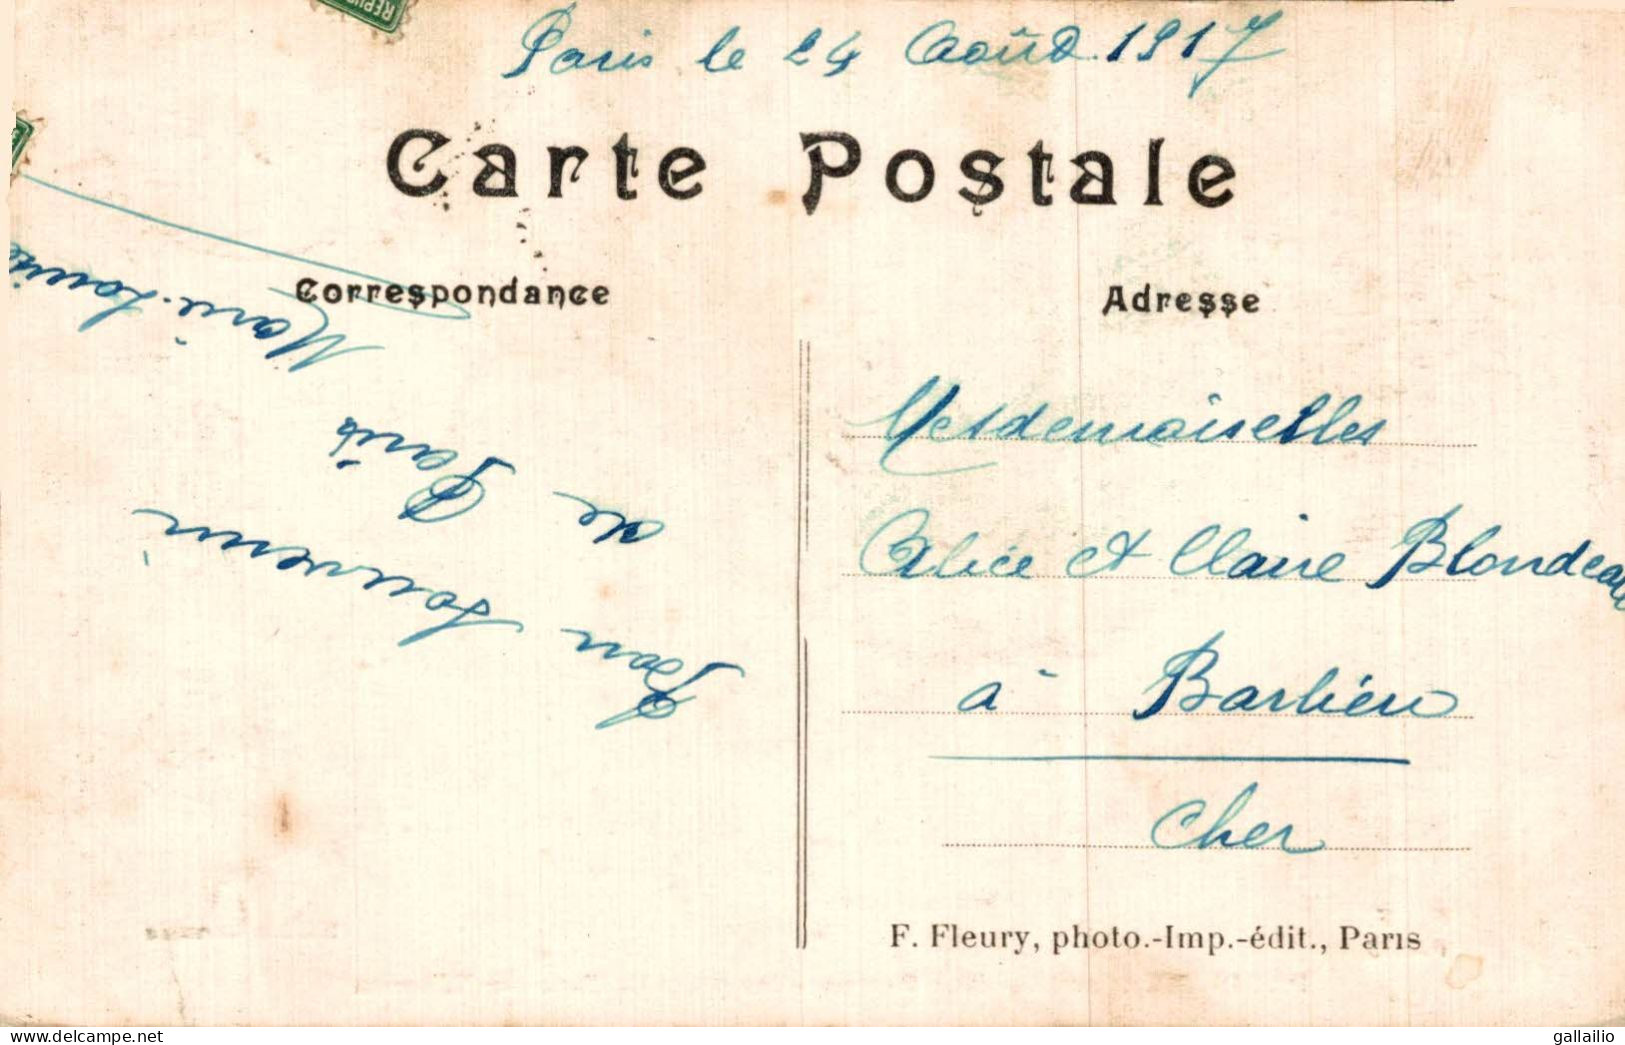 Paris le 24 Août 1917
Carte Postale
Correspondance
Adresse
Bon souvenir
de Paris
Marie-Louise
Mesdemoiselles
Alice et Claire Blondeau
à Barlieu
Cher
F. Fleury, photo.-Imp.-édit., Paris
gallailio